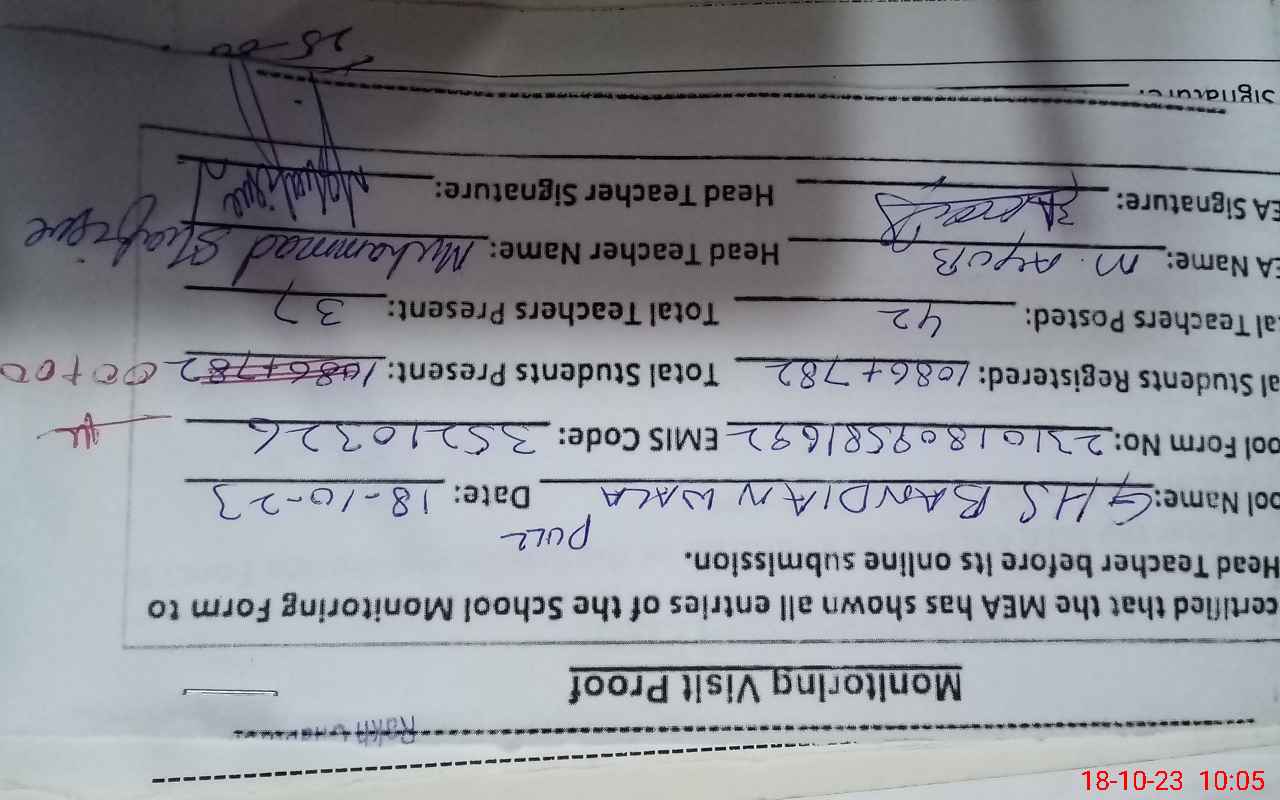 Monitoring Visit Proof
certified that the MEA has shown all entries of the School Monitoring Form to
Head Teacher before its online submission.
PULL
ool Name: GHS BANDIAN WALA Date: 18-10-23
ool Form No: 23101809581692 EMIS Code: 35210326
al Students Registered: 1086+782 Total Students Present: 1086+782 00+00
tal Teachers Posted: 42 Total Teachers Present: 37
EA Name: M. AYUB Head Teacher Name: Muhammad Shafique
EA Signature: Head Teacher Signature:
Signature:
18-10-23 10:05